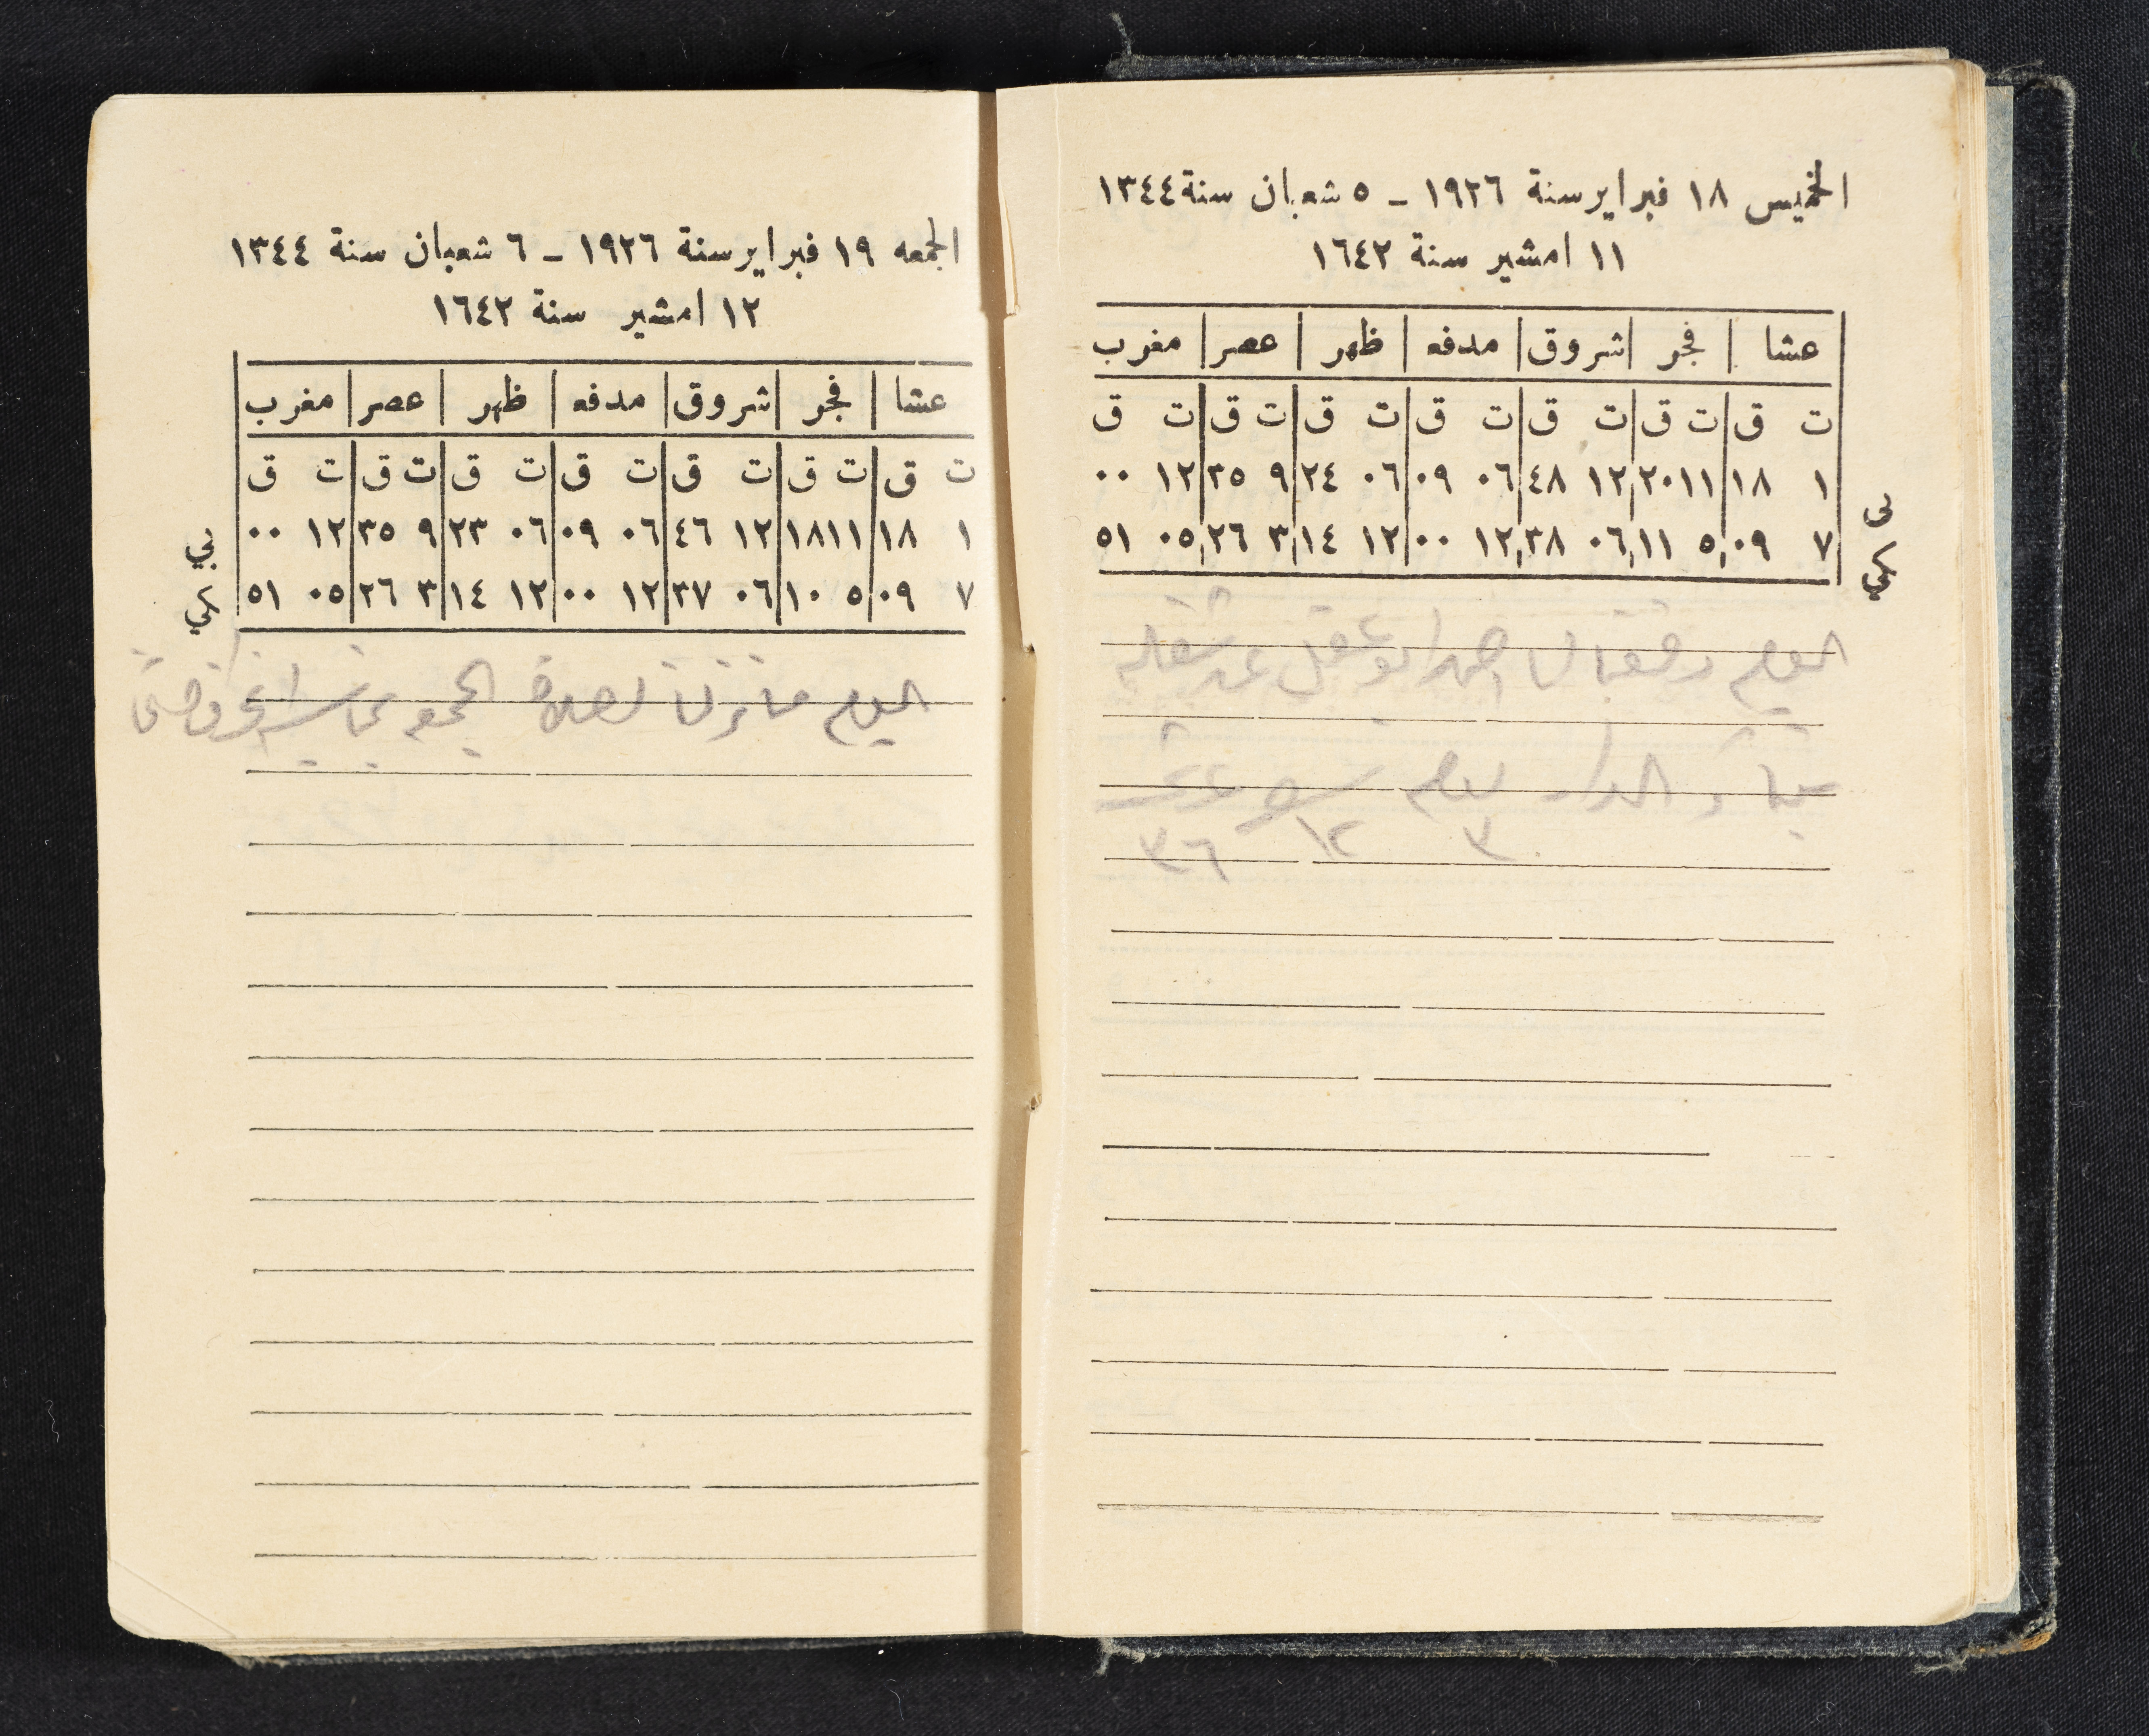 الخميس ١٨ فبراير سنة ١٩٢٦ - ٥ شعبان سنة ١٣٤٤
١١ امشير سنة ١٦٤٢
عشا فجر شروق مدفه ظهر عصر مغرب
ت ق ت ق ت ق ت ق ت ق ت ق ت ق
١ ١٨ ١١ ٢٠ ١٢ ٤٨ ٠٦ ٠٩ ٠٦ ٢٤ ٩ ٣٥ ١٢ ٠٠
٧ ٠٩ ٥ ١١ ٠٦ ٣٨ ١٢ ٠٠ ١٢ ١٤ ٣ ٢٦ ٠٥ ٥١
اليوم دفعنا لنا احمد ابو عقل عن شغله
الدار يوم
٣ ١٢ ٣٦
الجمعه ١٩ فبراير سنة ١٩٢٦ - ٦ شعبان سنة ١٣٤٤
١٢ امشير سنة ١٦٤٢
عشا فجر شروق مدفه ظهر عصر مغرب
ت ق ت ق ت ق ت ق ت ق ت ق ت ق
١ ١٨ ١١ ١٨ ١٢ ٤٦ ٠٦ ٠٩ ٠٦ ٢٣ ٩ ٣٥ ١٢ ٠٠
٧ ٠٩ ٥ ١٠ ٠٦ ٣٧ ١٢ ٠٠ ١٢ ١٤ ٣ ٢٦ ٠٥ ٥١
اليوم ما نزلنا لصلاة الجمعه